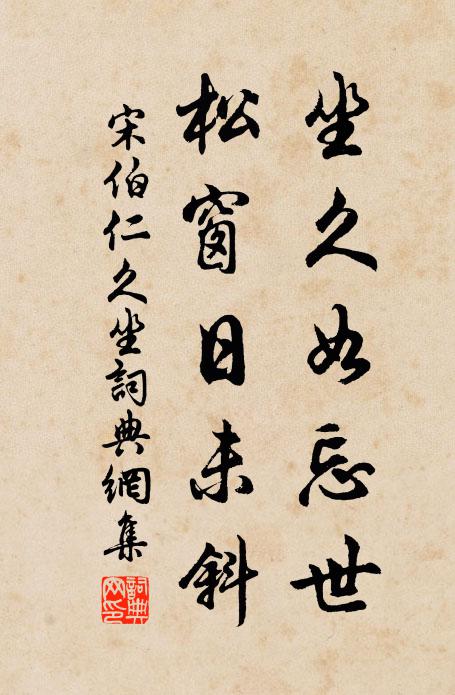 坐久如忘世
松窗日未斜
宋伯仁久坐詞典網集
詞典網印